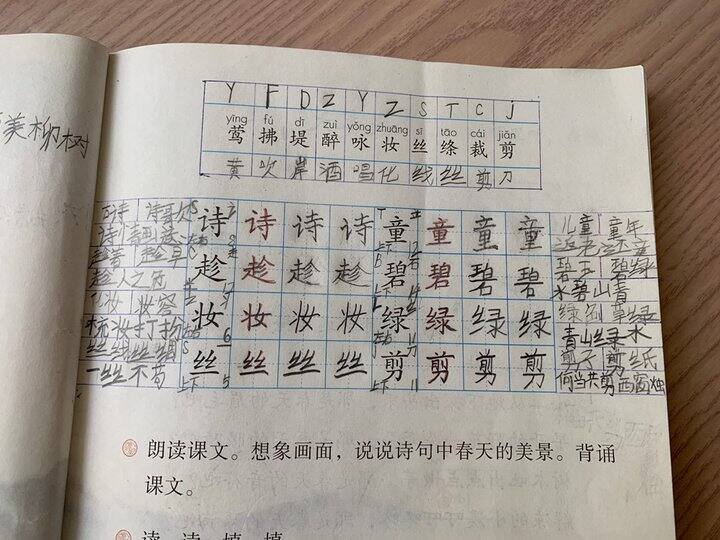 美柳树
Y F D Z Y Z S T C J
yīng fú dī zuì yǒng zhuāng sī tāo cái jiǎn
莺 拂 堤 醉 咏 妆 丝 绦 裁 剪
黄 吹 岸 酒 唱 化 线 丝 剪 刀
古诗 诗 诗 诗 诗 童 童 童 童 儿童 童年
趁早 趁 趁 趁 趁 碧 碧 碧 碧 碧玉 碧绿
趁人之危 水碧山青
化妆 妆容 妆 妆 妆 妆 绿 绿 绿 绿
梳妆打扮 青山绿水
丝线 丝绸 丝 丝 丝 丝 剪 剪 剪 剪 剪子 剪纸
一丝不苟 何当共剪西窗烛
朗读课文。想象画面，说说诗句中春天的美景。背诵
课文。
读一读，填一填。